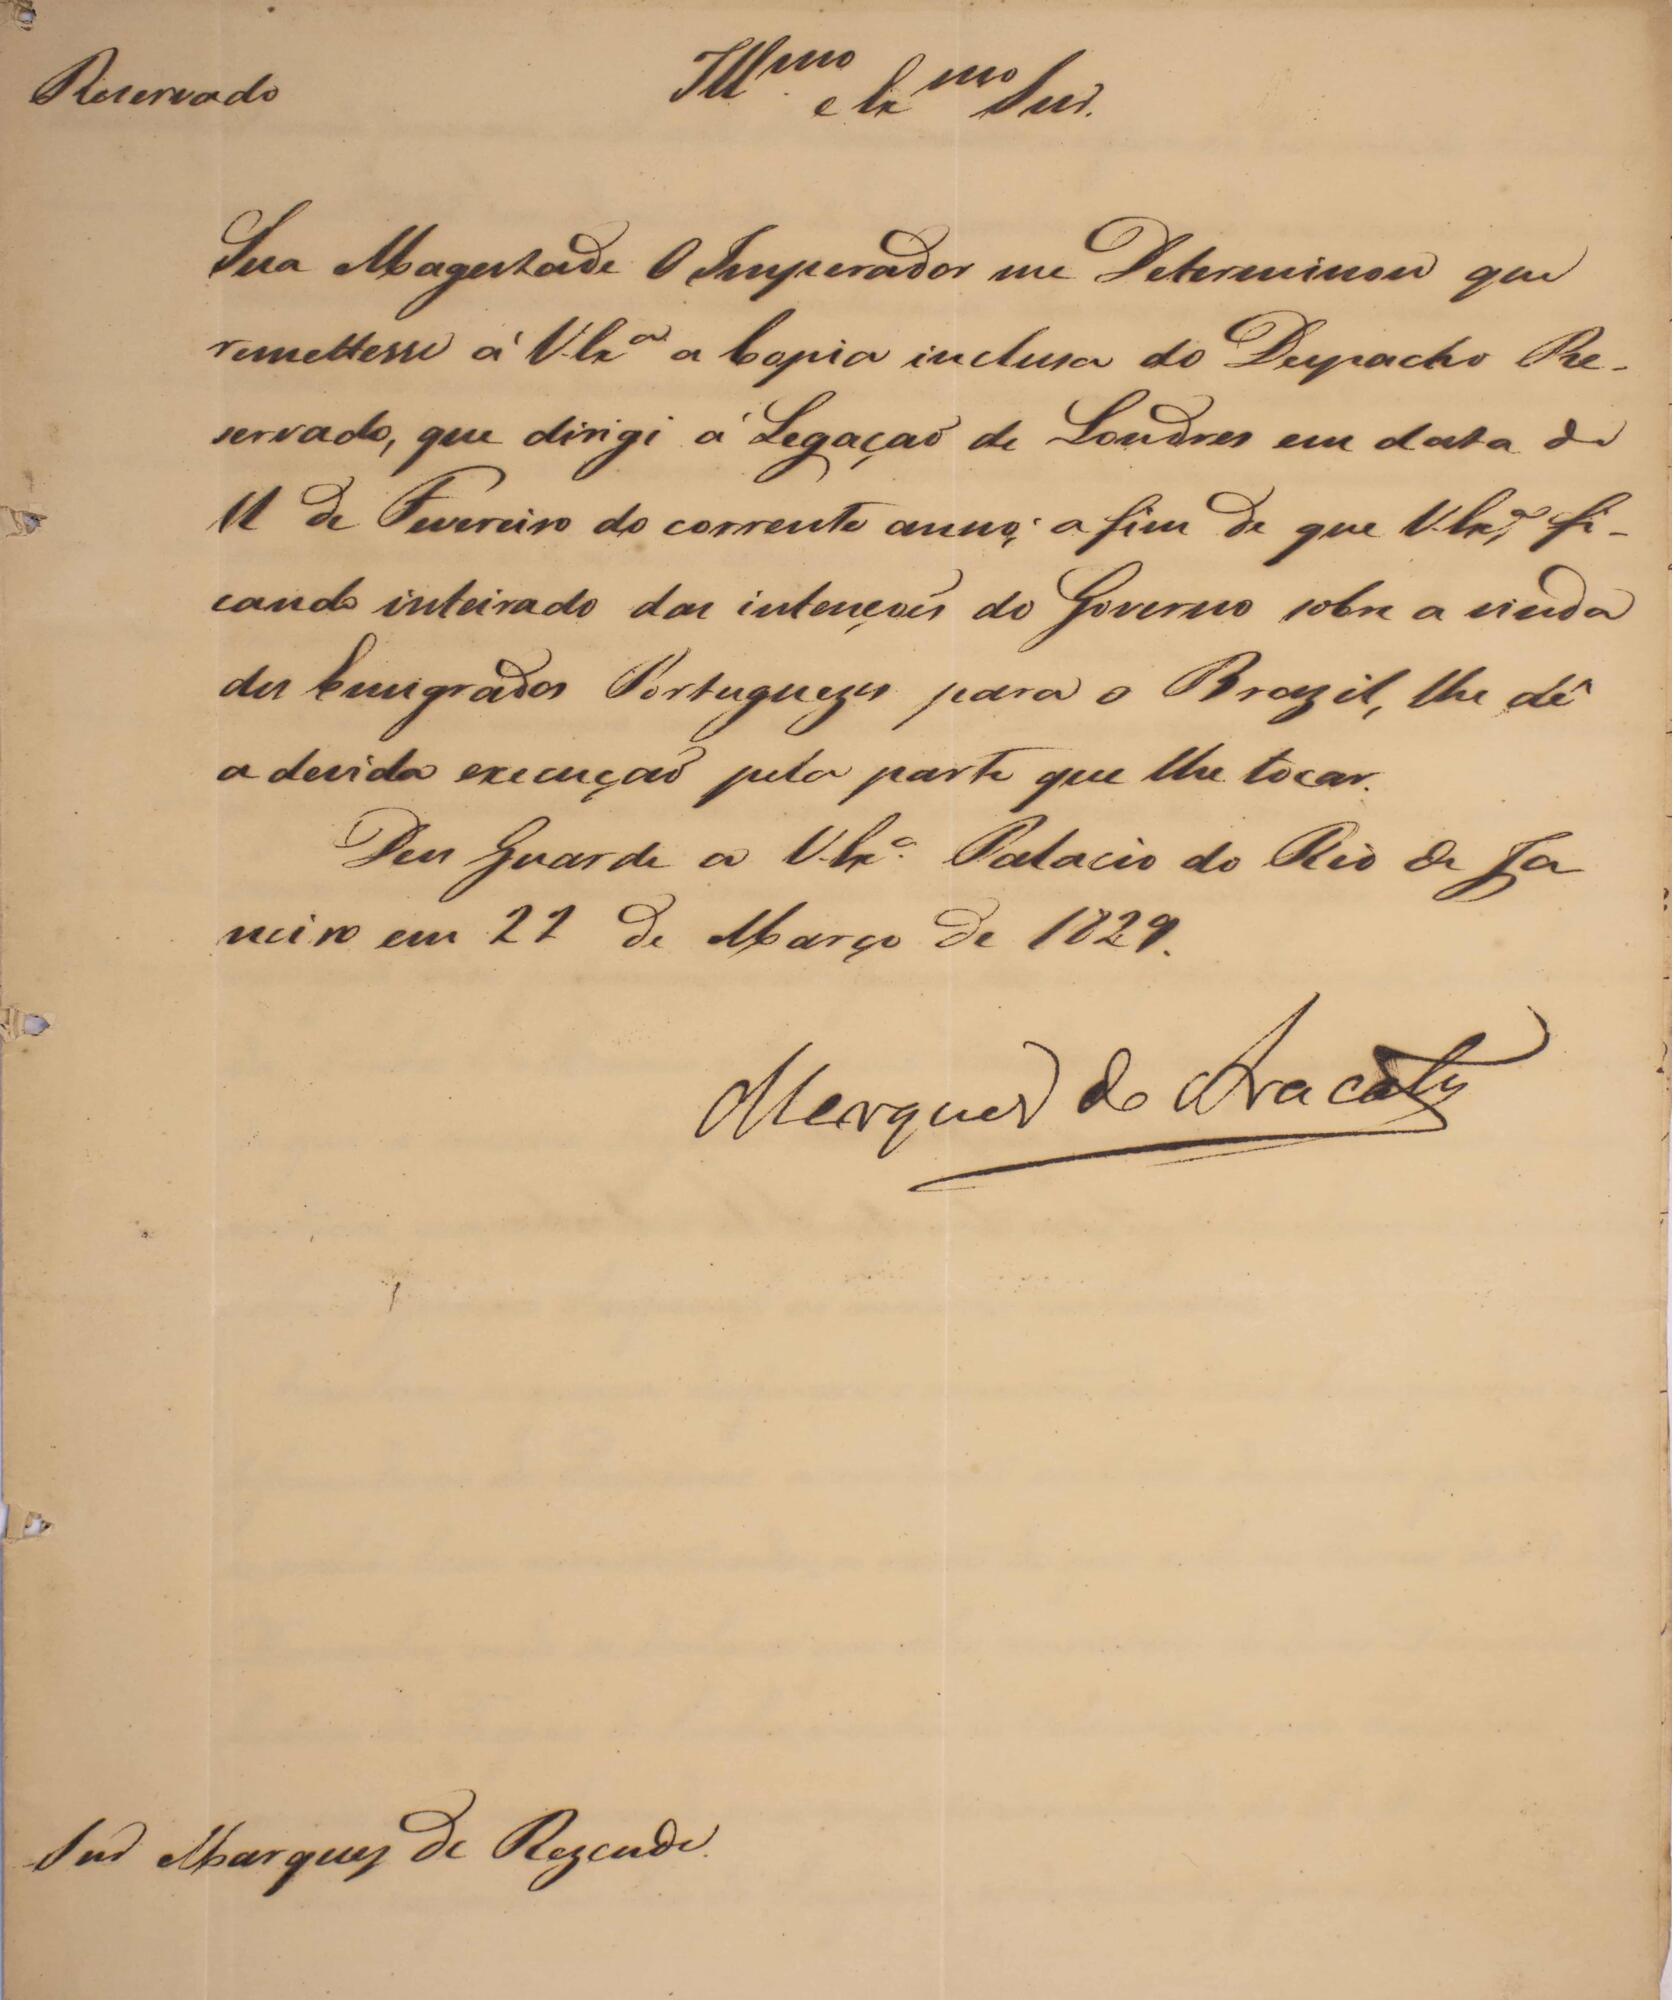 Reservado
Ill.mo e Ex.mo Snr.
Sua Magestade O Imperador me Determinou que
remettesse á V. Ex.a a Copia inclusa do Despacho Re-
servado, que dirigi á Legaçaõ de Londres em data de
11 de Fevereiro do corrente anno; a fim de que V. Ex.a, fi-
cando inteirado das intençoẽs do Governo sobre a vinda
dos Emigrados Portuguezes para o Brazil, lhe dê
a devida execuçaõ pela parte que lhe tocar.
Deus Guarde a V. Ex.a Palacio do Rio de Ja
neiro em 22 de Março de 1829.
Marquez do Aracaty
Snr Marquez de Rezende.